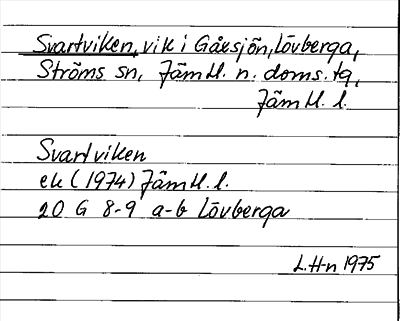 Svartviken, vik i Gåxsjön, Lövberga,
Ströms sn, Jämtl. n. doms. tg,
Jämtl. l.
Svartviken
ek (1974) Jämtl. l.
20 G 8-9 a-b Lövberga
L.H-n 1975